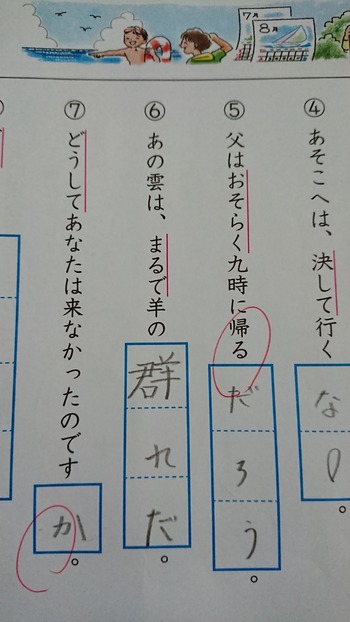 7月
8月
④ あそこへは、決して行くな。
⑤ 父はおそらく九時に帰るだろう。
⑥ あの雲は、まるで羊の群れだ。
⑦ どうしてあなたは来なかったのですか。